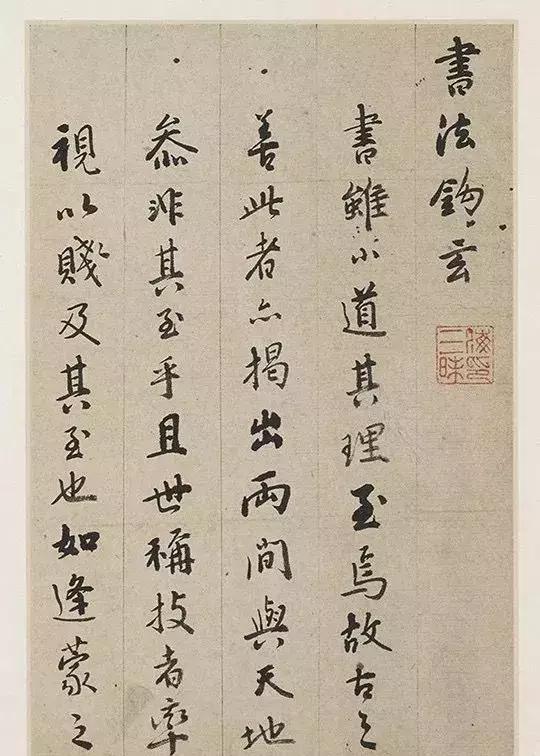 書法鈎玄
書雖小道其理至焉故古之
善此者亦揭出兩間與天地
叅非其至乎且世稱技者率
視以賤及其至也如逢蒙之
海印三昧